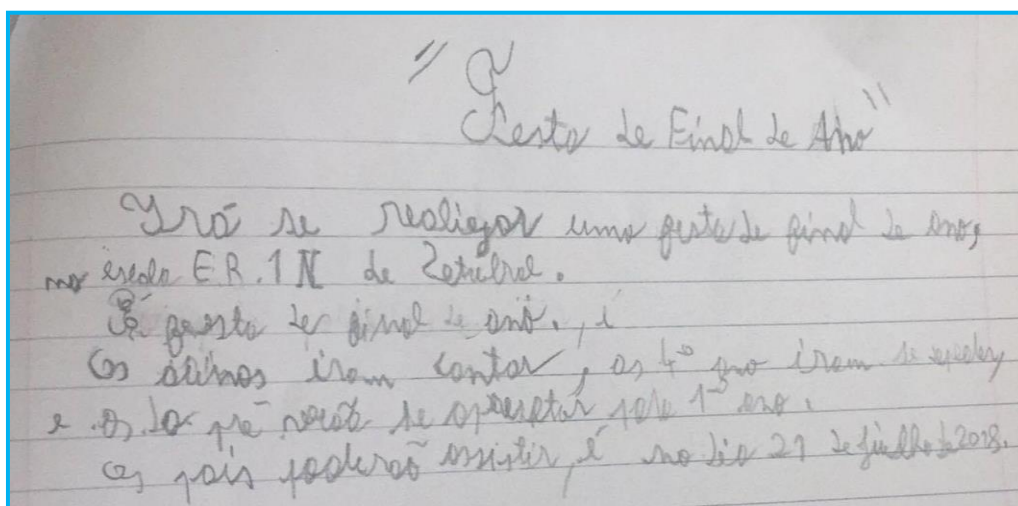 "Festa de Final de Ano"
Irá se realizar uma festa de final de ano,
na escola E.R.1N de Zetubal.
festa de final de ano., i
Os alunos iram cantar, os 4º ano iram se
e os do pré verão se apresentar 1º ano.
Os pais poderaõ assistir, é no dia 21 de julho de 2018.